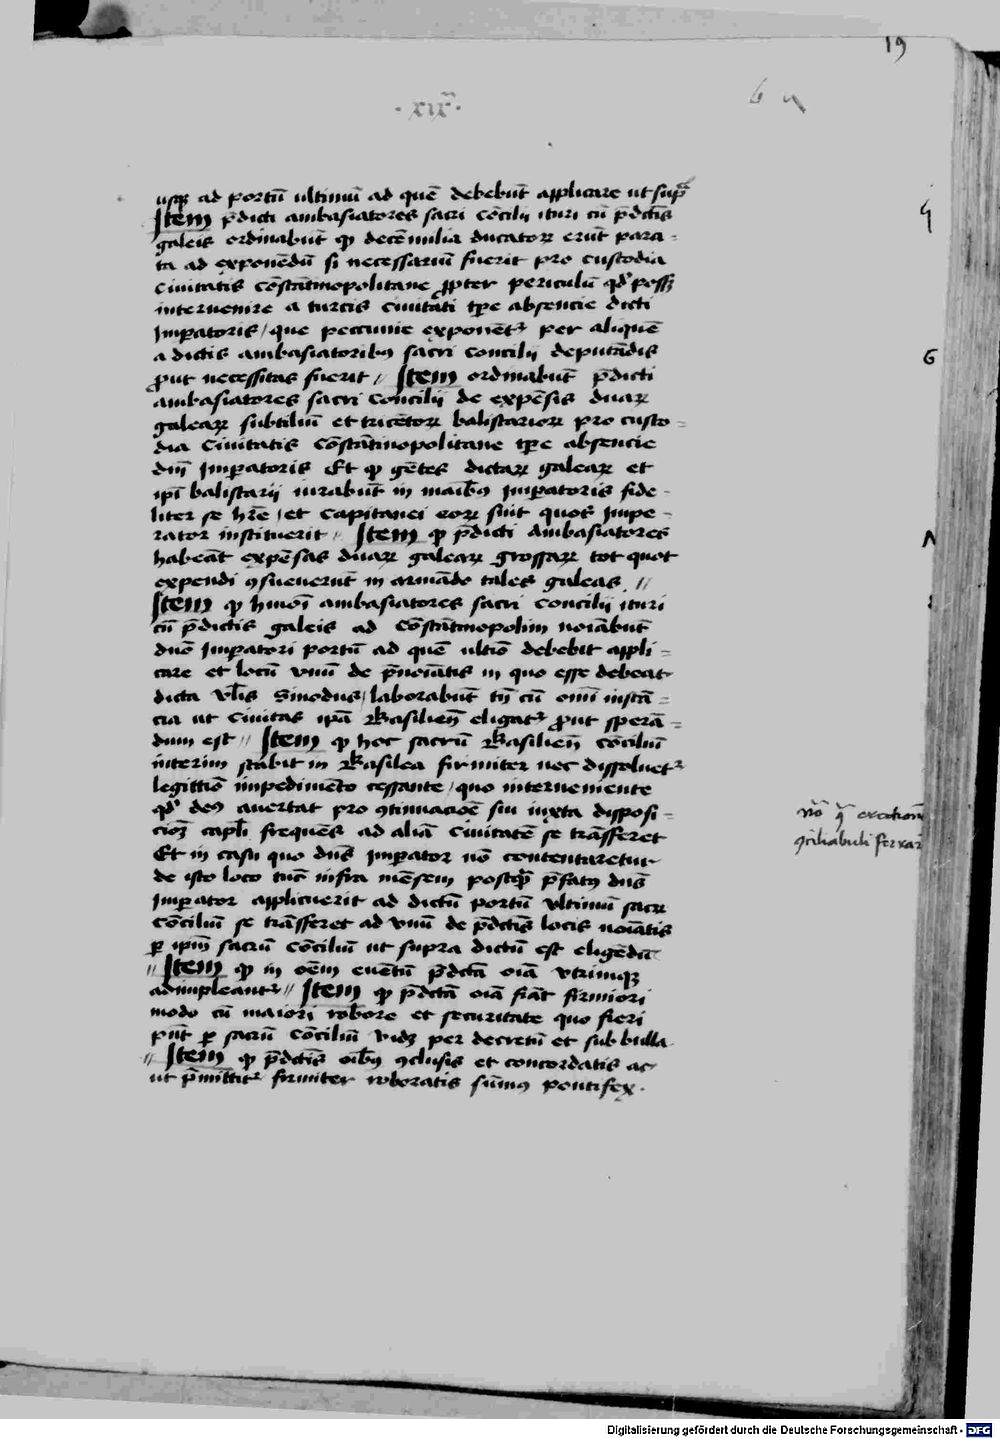 19
·xix·
usq ad portū ultimū ad quē debebūt applicare ut sup̄
Item p̄dicti ambasiatores sacri cōcilij ituri cū p̄dctīs
galeis ordinabūt qp decē milia ducatoꝝ erūt para-
ta ad exponēdū si necessariū fuerit pro custodia
Ciuitatis cōstātinopolitane ꝓpter periculū qd' posset
interuenire a turcis ciuitati tp̄e absencie dicti
Imp̄atoris / que peccunie exponēt' per aliquē
a dictis ambasiatoribꝰ sacri concilij deputādis
ꝓut necessitas fuerit // Item ordinabūt p̄dicti
ambasiatores sacri concilij de expēsis duaꝝ
galeaꝝ subtiliū et tricētoꝝ balistarioꝝ pro custo-
dia Ciuitatis cōstātinopolitane tp̄e absencie
dnī Imp̄atoris Et qp gētes dictaꝝ galeaꝝ et
ip̄i balistarij iurabūt in manibꝰ Imp̄atoris fide-
liter se hr̄e / et capitanei eoꝝ sint quos Impe-
rator instituerit // Item qp p̄dicti ambasiatores
habeāt expēsas duaꝝ galeaꝝ grossaꝝ tot quot
expendi ꝯsueuerūt in armādo tales galeas //
Item qp hmōi ambasiatores sacri concilij ituri
cū p̄dictis galeis ad cōstātinopolim noiābūt
dnō Imp̄atori portū ad quē ultīo debebit appli-
care et locū vnū de p̄noiātis in quo esse debeat
dicta vlīs sinodus / laborabūt tn̄ cū omī instā-
cia ut ciuitas ip̄a Basilien̄ eligat' ꝓut sperā-
dum est // Item qp hoc sacrū Basilien̄ cōciliū
interim stabit in Basilea firmiter nec dissoluet'
legittīo impedimēto cessante / quo interueniente
qd' deus auertat pro ꝯtinuacōe sui iuxta disposi-
cioꝫ capl̄i frequēs ad aliā ciuitatē se trāsferet
Et in casu quo dn̄s Imp̄ator nō contentaretur
de isto loco tūc infra mēsem postq̄ p̄fatꝰ dn̄s
Imp̄ator applicuerit ad dictū portū vltimū sacrū
cōciliū se trāsferet ad vnū de p̄dctīs locis noiātis
ꝑ ip̄m sacrū cōciliū ut supra dictū est eligēdū
// Item qp in oēm euētū p̄dctā oīa vtrimqꝫ
adimpleantr // Item qp p̄dctā oīa fiāt firmiori
modo cū maiori robore et securitate quo fieri
pūt ꝑ sacrū cōciliū vidꝫ per decretū et sub bulla
// Item qp p̄dctīs oībꝰ ꝯclusis et concordatis ac
ut p̄mittit' firmiter roboratis sūmꝰ pontifex ·
ꝯciliabuli ferrar
G
N
Digitalisierung gefördert durch die Deutsche Forschungsgemeinschaft - DFG